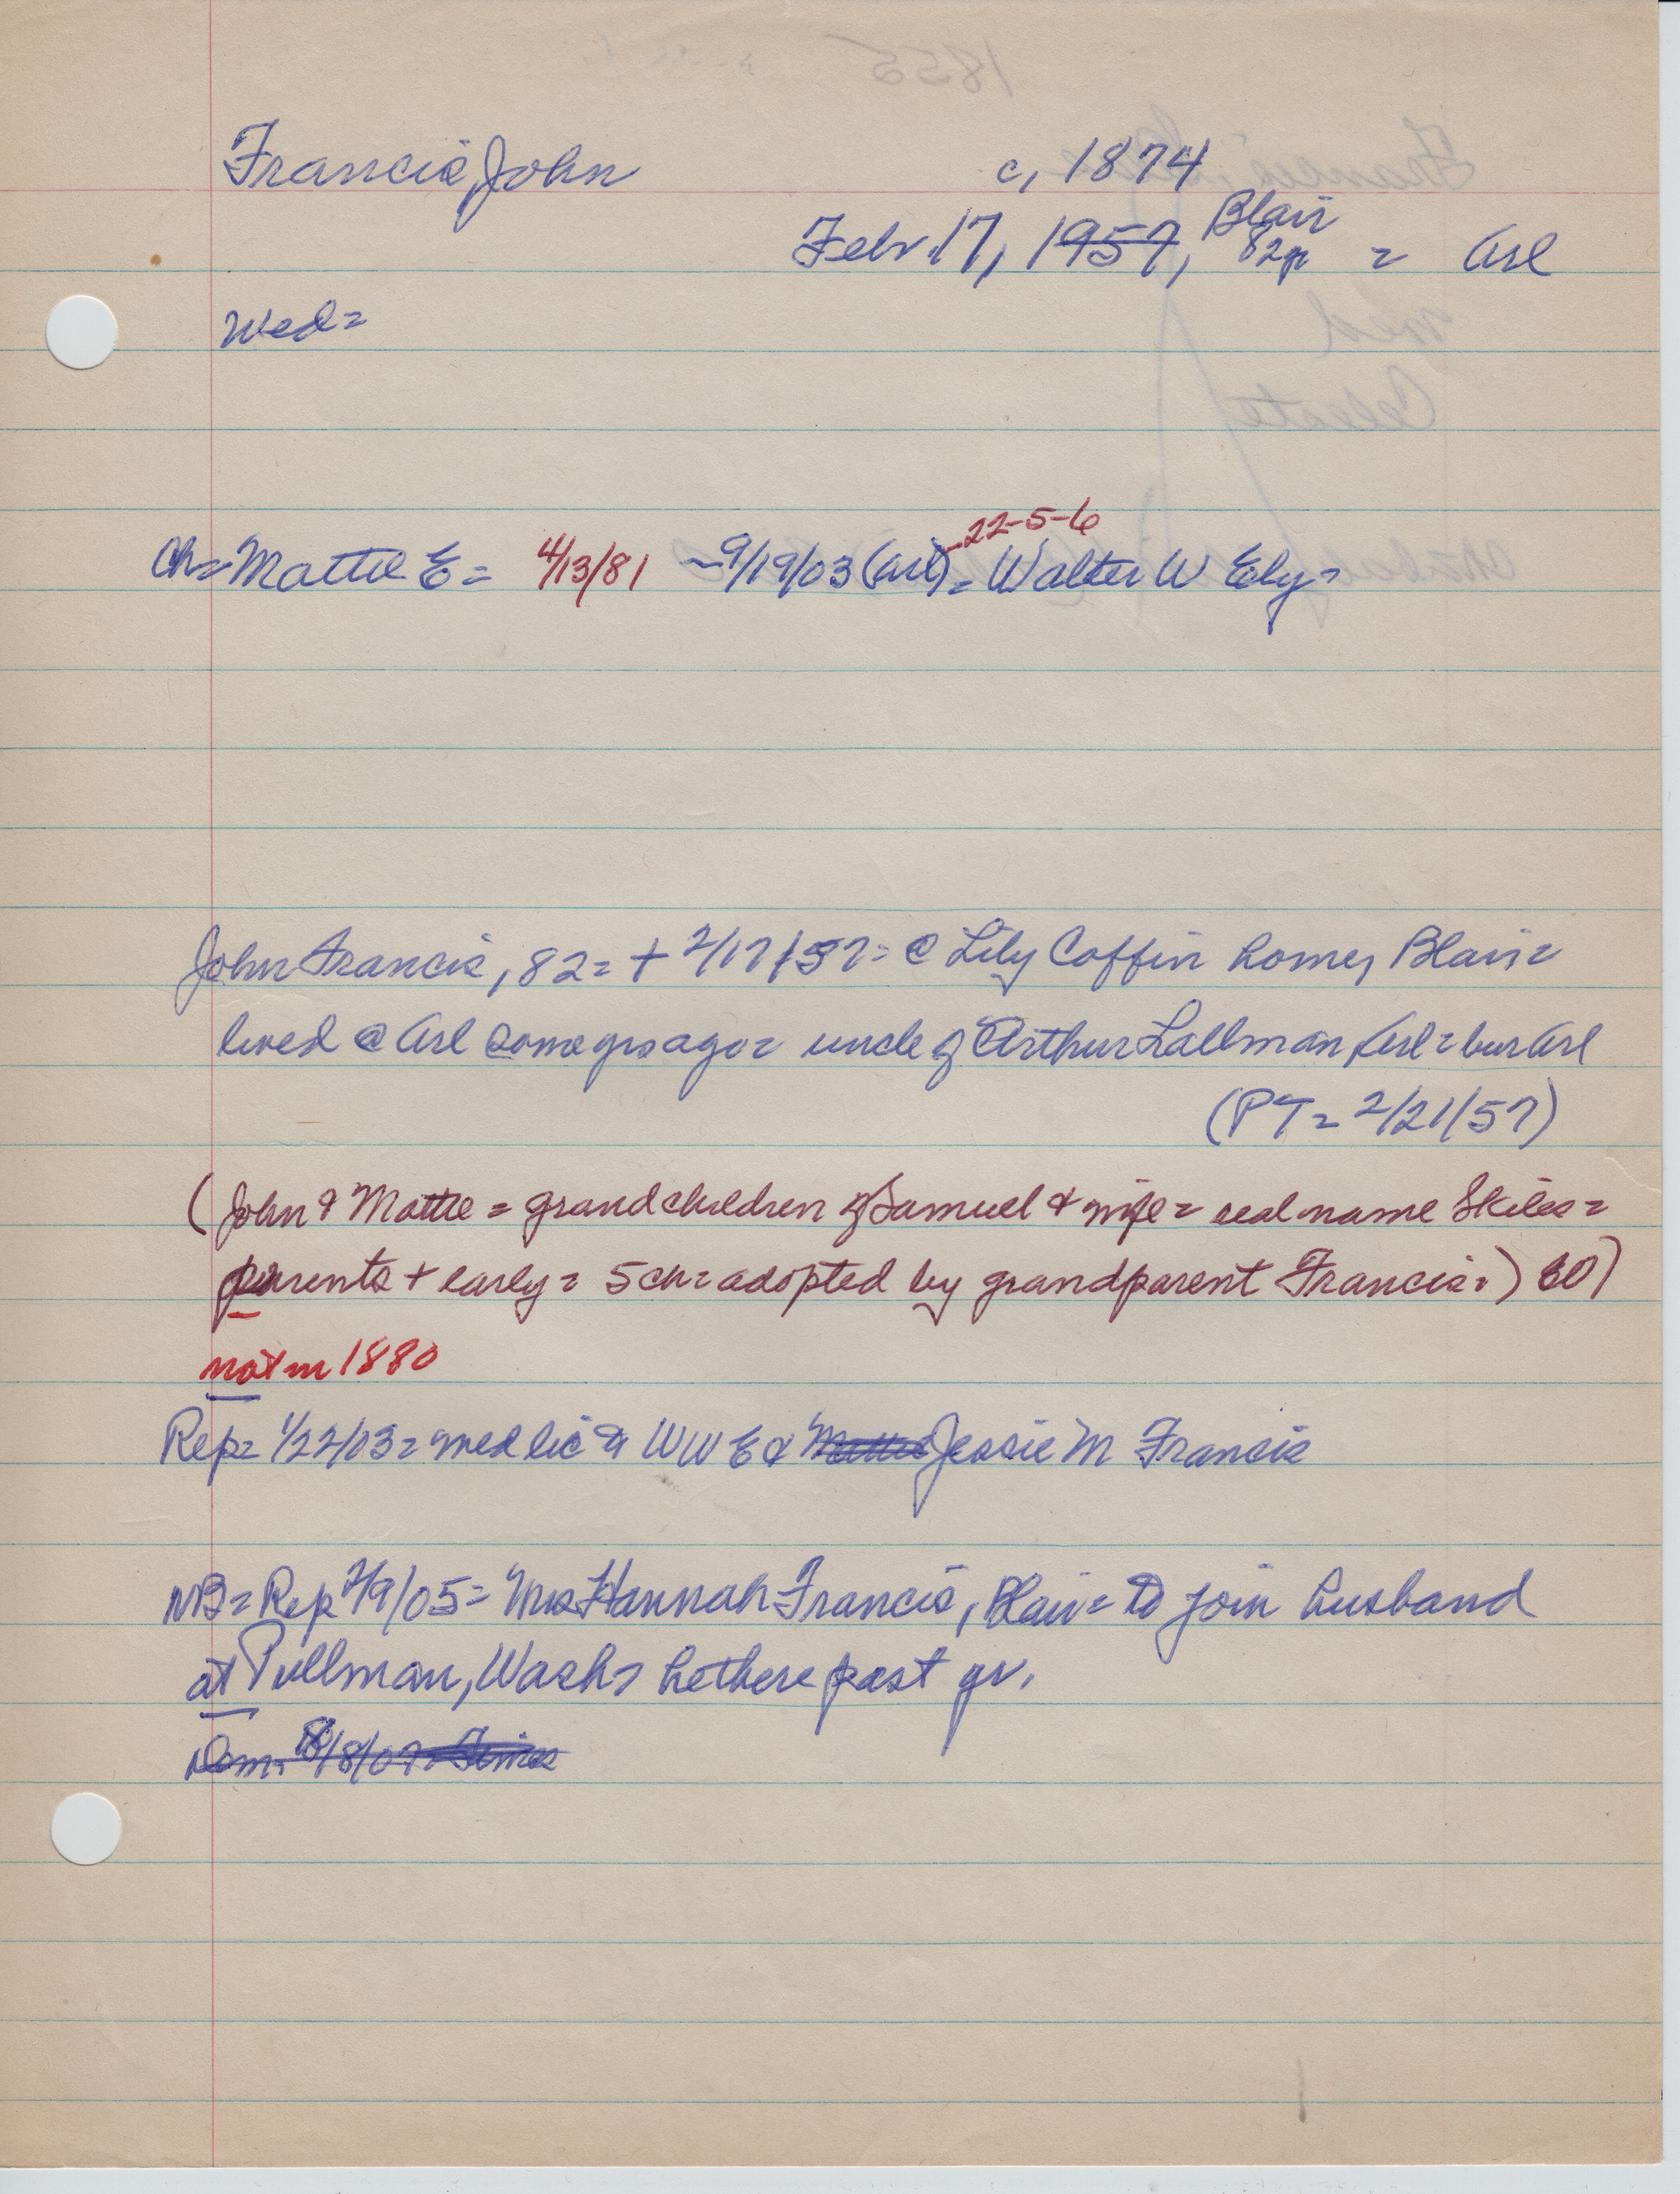 Francis, John c, 1874
Febr 17, 1957, Blair 82y = Arl
Wed=
Ch= Mattie E = 4/13/81 - 9/19/03 (Arl) - 22-5-6 = Walter W Ely =
John Francis, 82 = + 2/17/57 = @ Lily Coffin home, Blair =
lived @ Arl some yrs ago = uncle of Arthur Lallman, Arl = bur Arl
(PT = 2/21/57)
(John & Mattie = grandchildren of Samuel & wife = real name Skiles =
parents + early = 5 ch = adopted by grandparent Francis.)
not in 1880
Rep = 1/22/03 = wed lic to WWE & Mattie Jessie M Francis
NB = Rep 2/9/05 = Mrs Hannah Francis, Blair = to join husband
at Pullman, Wash = he there past yr.
1855
Francis,
Wed
Celeste